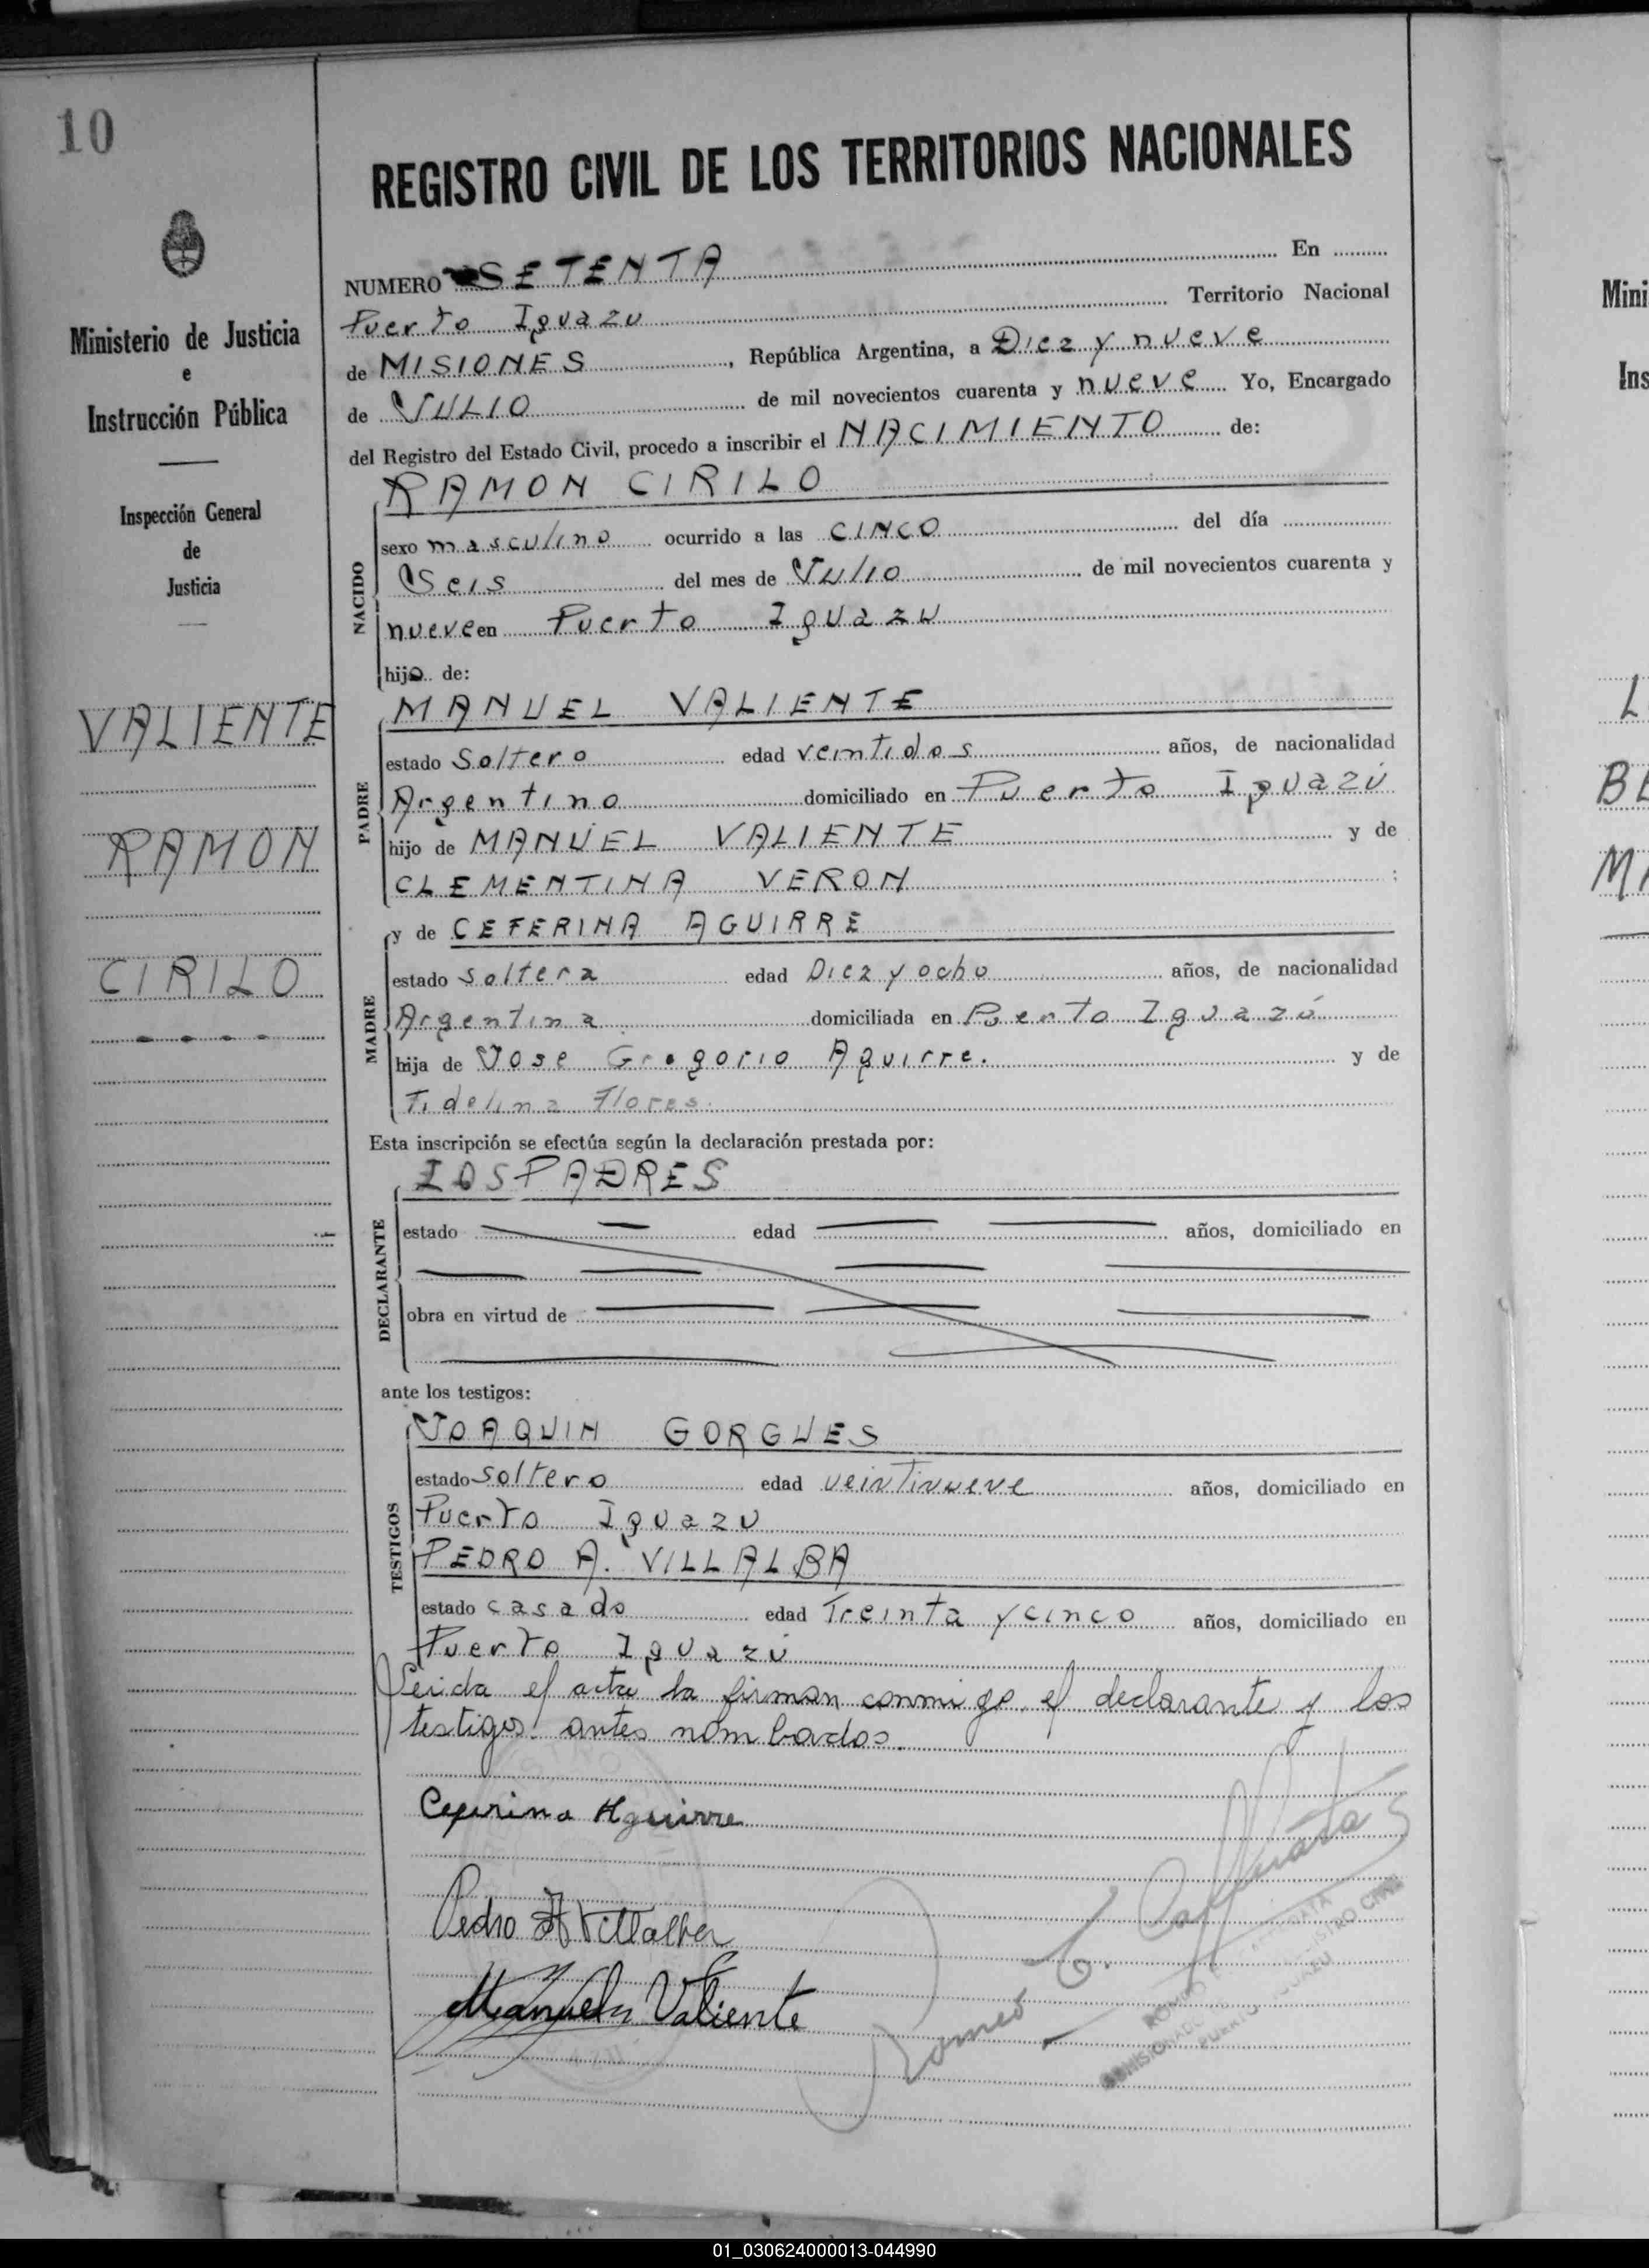 10
REGISTRO CIVIL DE LOS TERRITORIOS NACIONALES
Ministerio de Justicia
e
Instrucción Pública
Inspección General
de
Justicia
VALIENTE
RAMON
CIRILO
NUMERO SETENTA En
Puerto Iguazu Territorio Nacional
de MISIONES, República Argentina, a Diez y nueve
de JULIO de mil novecientos cuarenta y nueve Yo, Encargado
del Registro del Estado Civil, procedo a inscribir el NACIMIENTO de:
NACIDO
RAMON CIRILO
sexo masculino ocurrido a las CINCO del día
Seis del mes de Julio de mil novecientos cuarenta y
nueve en Puerto Iguazu
hijo de:
PADRE
MANUEL VALIENTE
estado Soltero edad veintidos años, de nacionalidad
Argentino domiciliado en Puerto Iguazú
hijo de MANUEL VALIENTE y de
CLEMENTINA VERON;
MADRE
y de CEFERINA AGUIRRE
estado soltera edad Diez y ocho años, de nacionalidad
Argentina domiciliada en Puerto Iguazú
hija de Jose Gregorio Aguirre. y de
Fidelina Flores.
Esta inscripción se efectúa según la declaración prestada por:
DECLARANTE
LOS PADRES
estado edad años, domiciliado en
obra en virtud de
ante los testigos:
TESTIGOS
JOAQUIN GORGUES
estado soltero edad veintinueve años, domiciliado en
Puerto Iguazu
PEDRO A. VILLALBA
estado casado edad Treinta y cinco años, domiciliado en
Puerto Iguazú
Leida el acta la firman conmigo el declarante y los
testigos antes nombados.
Ceferina Aguirre
Pedro A Villalba
Manuel Valiente
Romeo C.
PUERTO IGUAZU
Mini
Ins
L
BE
MA
01_030624000013-044990